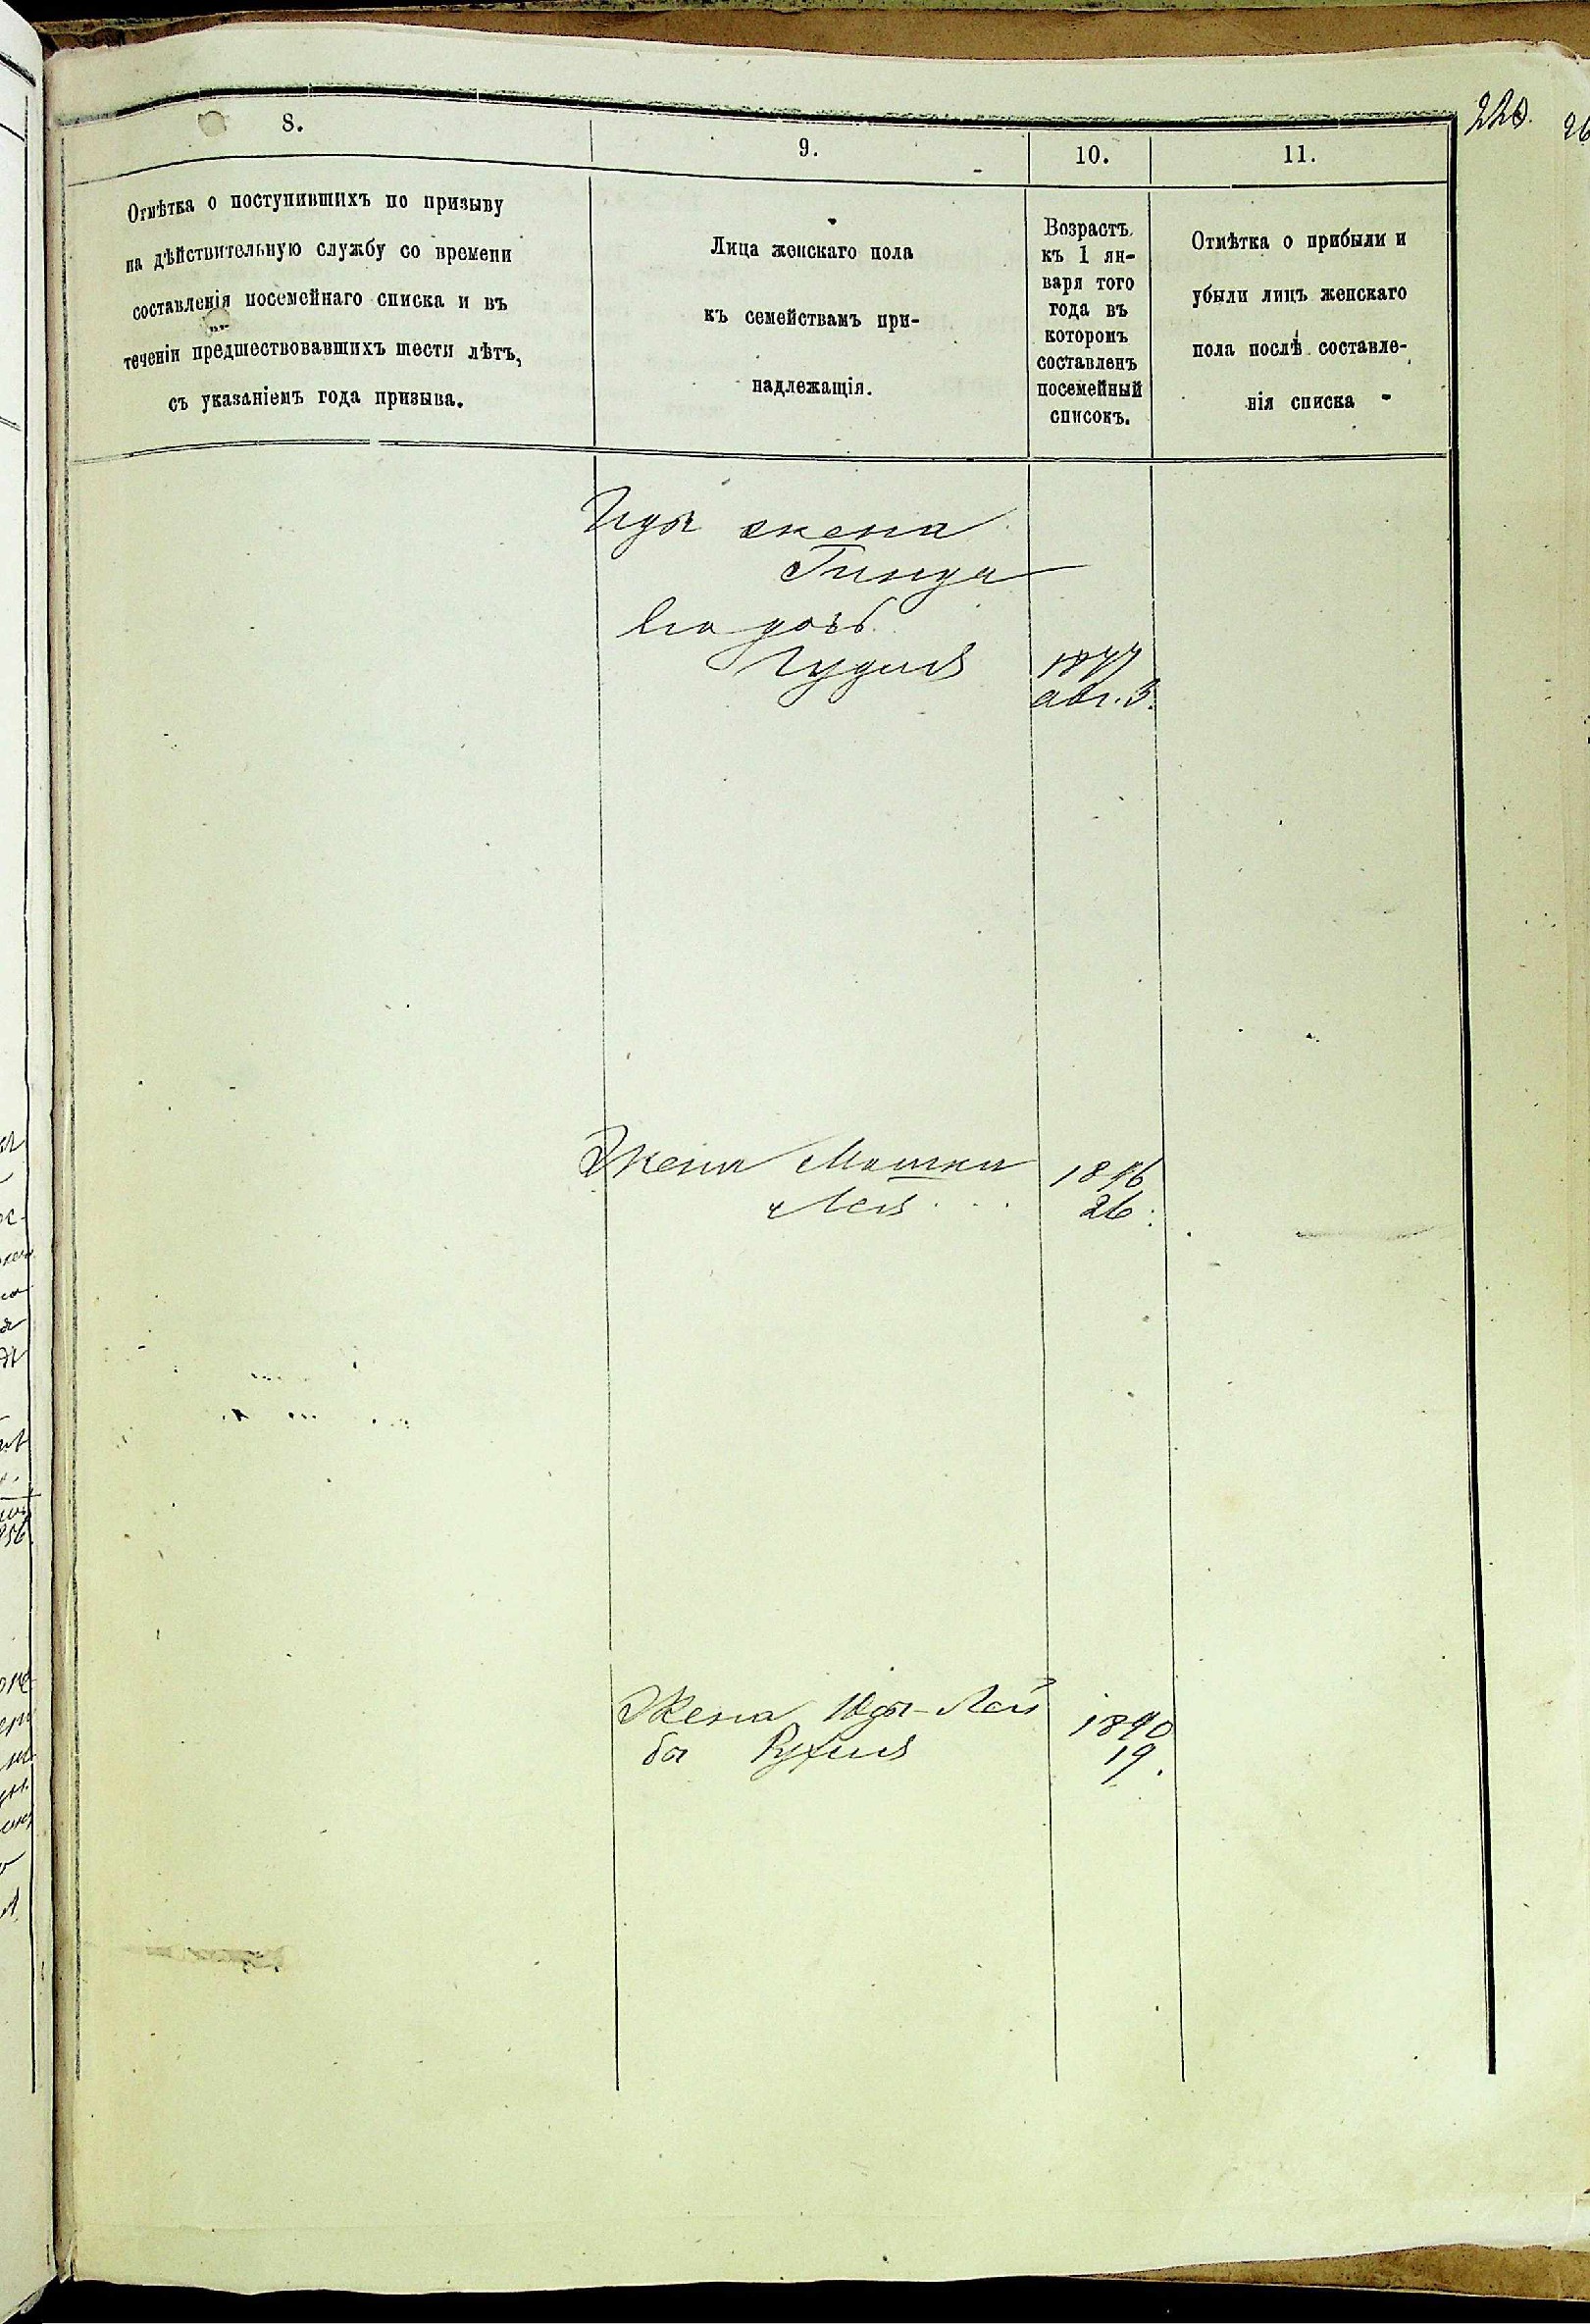 220.
26
8.
9.
10.
11.
Отмѣтка о поступившихъ по призыву
на дѣйствительную службу со времени
составленія посемейнаго списка и въ
теченіи предшествовавшихъ шести лѣтъ,
съ указаніемъ года призыва.
Лица женскаго пола
къ семействамъ при-
надлежащія.
Возрастъ
къ 1 ян-
варя того
года въ
которомъ
составленъ
посемейный
списокъ.
Отмѣтка о прибыли и
убыли лицъ женскаго
пола послѣ составле-
нія списка
жена
Гинда
Его дочь
1877
авг. 3.
Жена Мошки 18
Лея 26
Жена Юды-Лей 1890
бы Рухля 19.